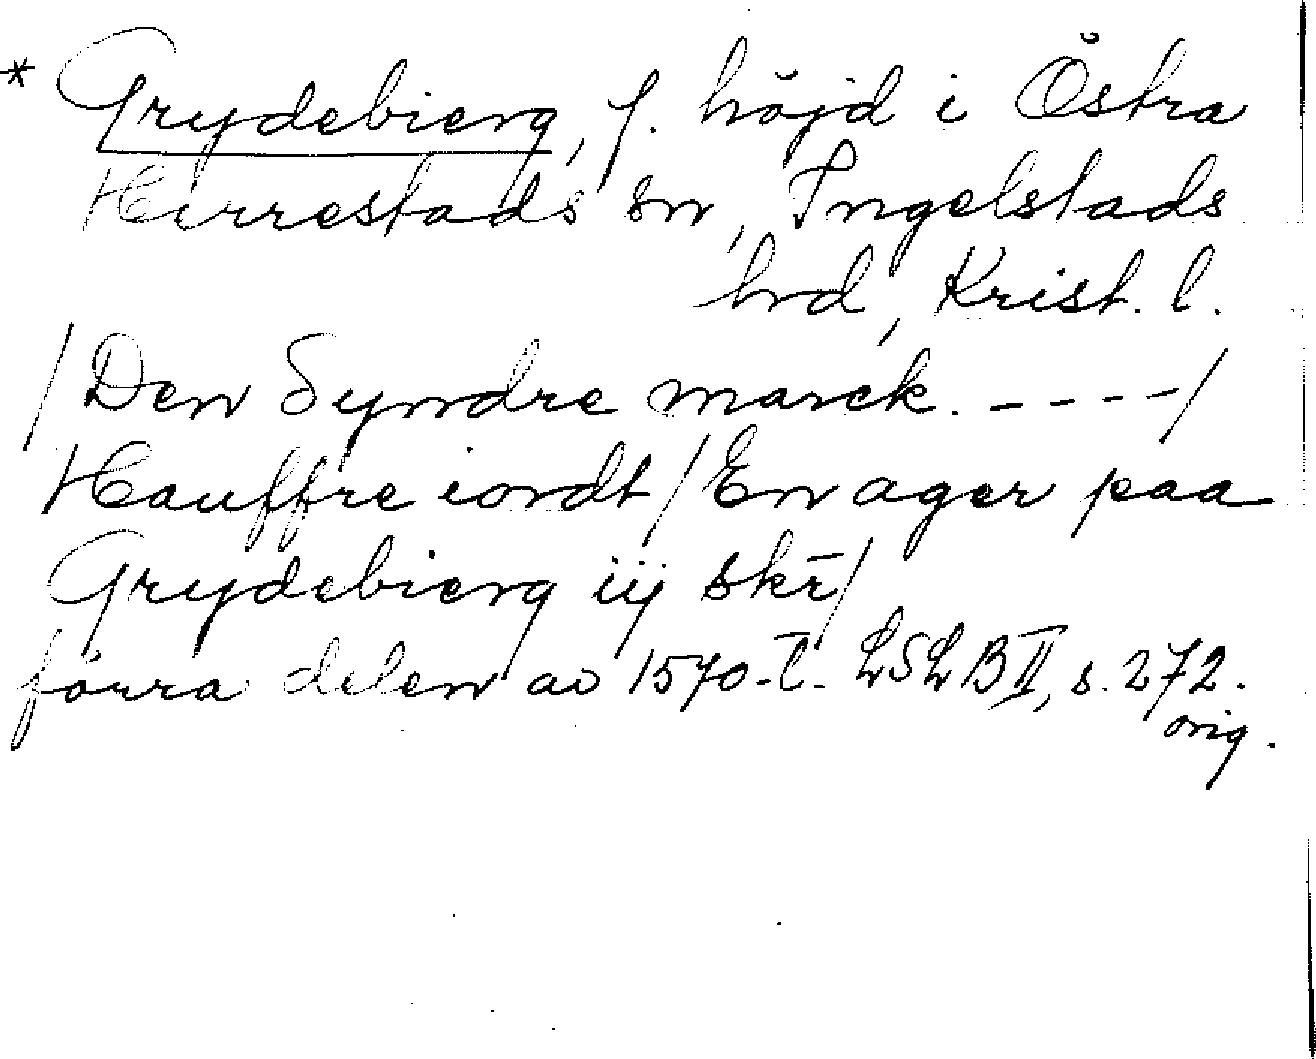 * Grydebierg, f. höjd i Östra
Herrestads sn, Ingelstads
hrd, Krist. l.
/Den Syndre marck. ----/
Hauffre iordt/En ager paa
Grydebierg iij skr̄/
förra delen av 1570-t. LSLB II, s. 272.
orig.